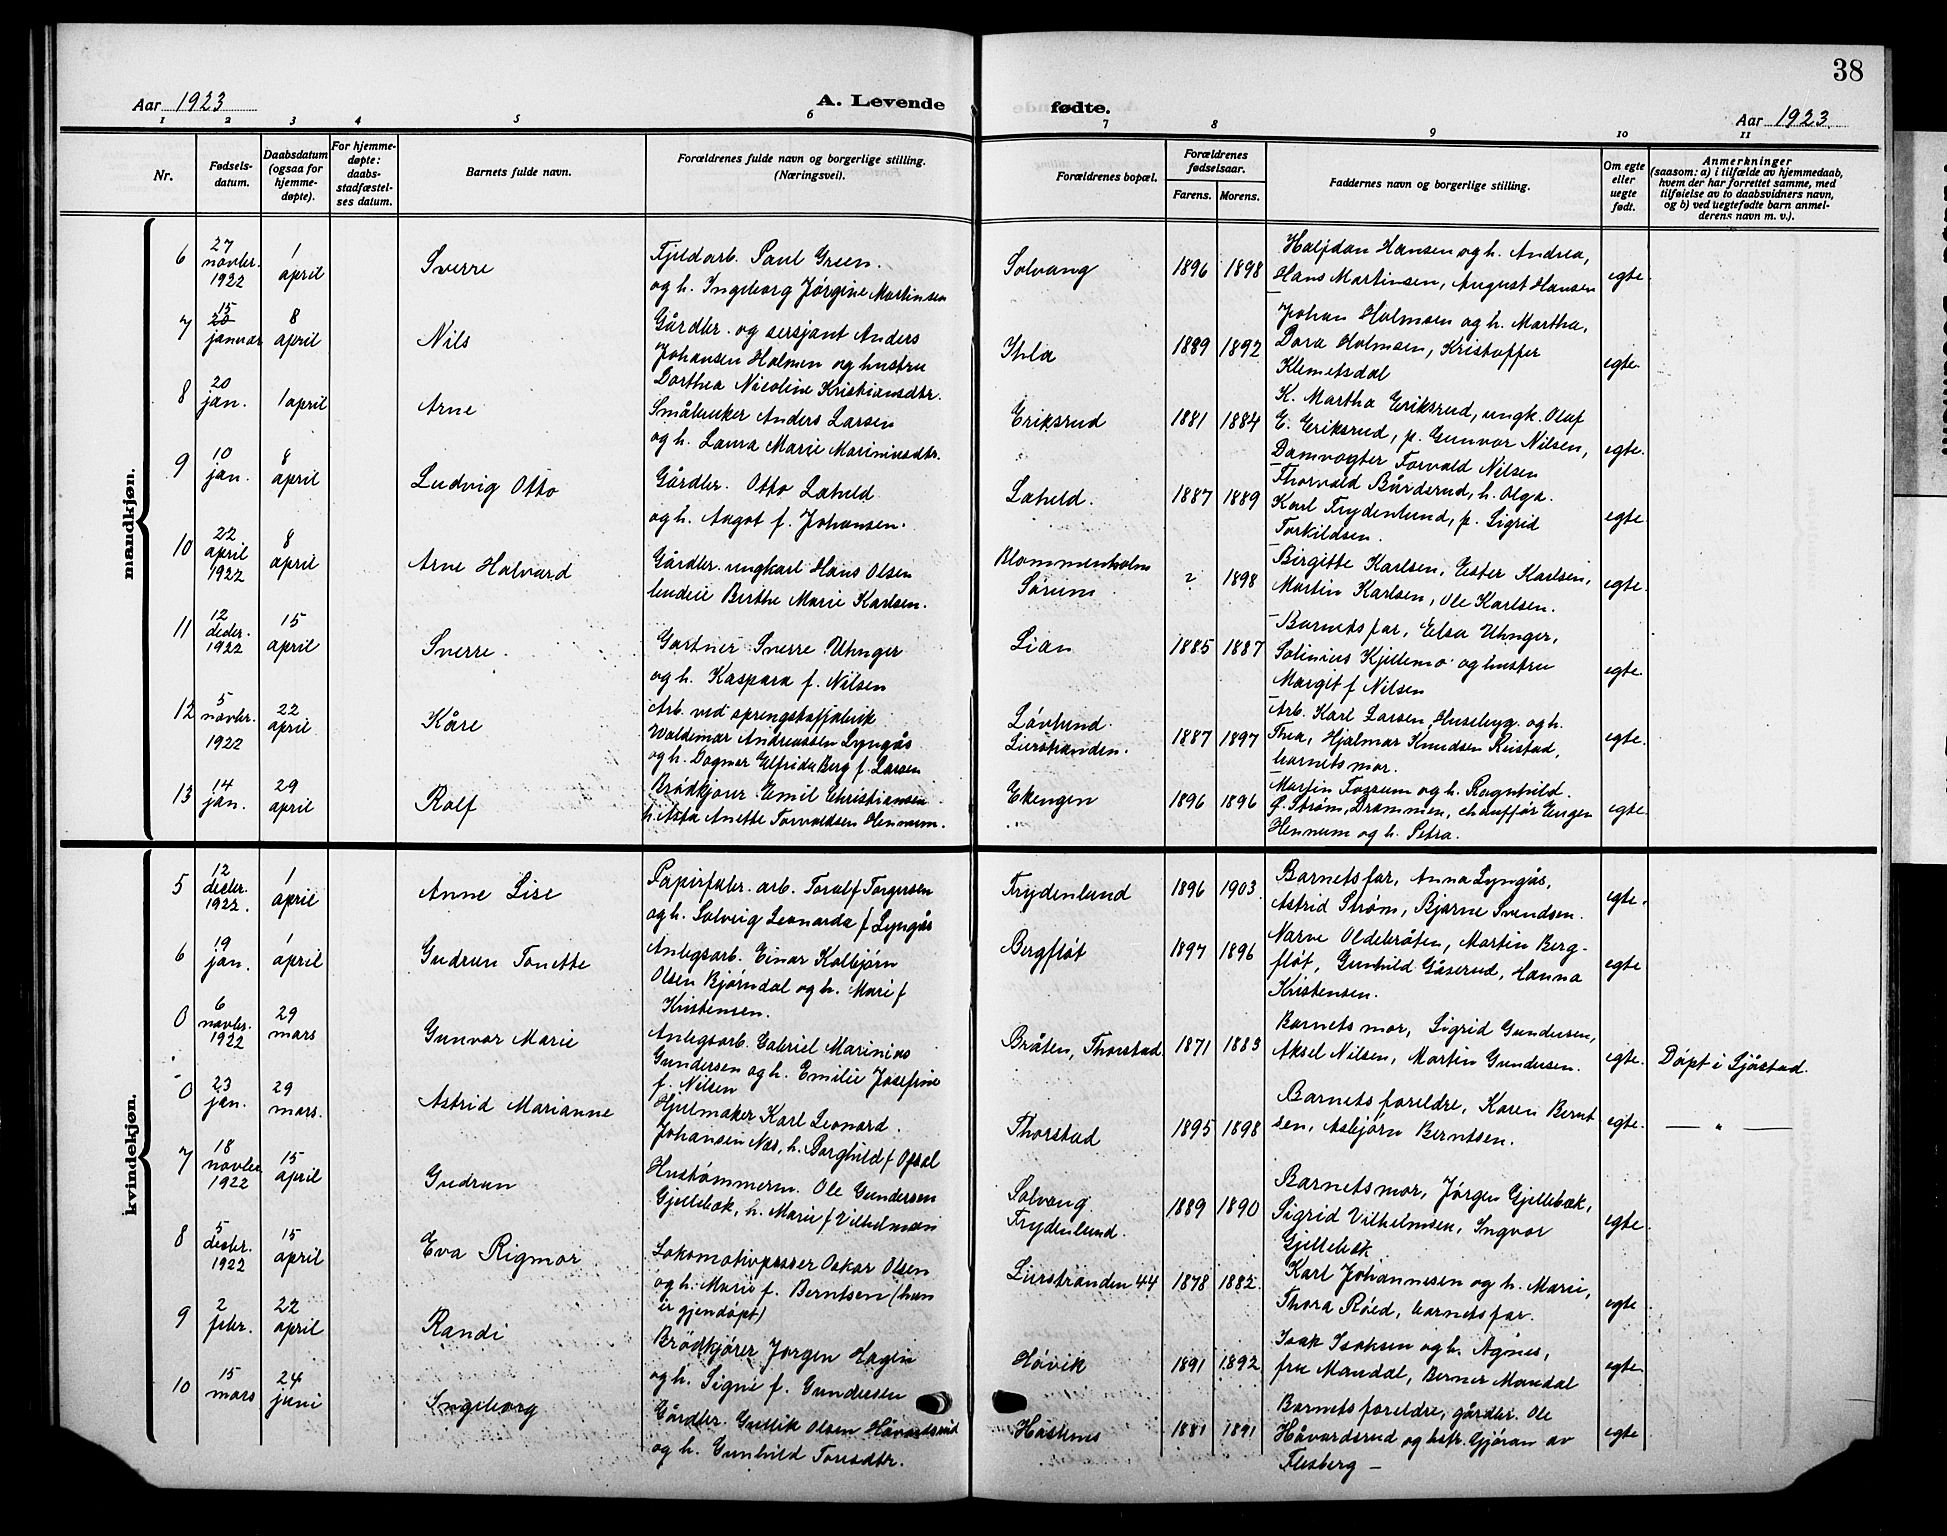 38
Aar 1923
A. Levende
fødte.
Aar 1923.
1 2 3 4 5 6 7 8 9 10 11
Nr.
Fødsels-
datum.
Daabsdatum
(ogsaa for
hjemme-
døpte).
For hjemme-
døpte:
daabs-
stadfæstel-
ses datum.
Barnets fulde navn.
Forældrenes fulde navn og borgerlige stilling.
(Næringsvei).
Forældrenes bopæl.
Forældrenes
fødselsaar.
Farens. Morens.
Faddernes navn og borgerlige stilling.
Om egte
eller
uegte
født.
Anmerkninger
(saasom: a) i tilfælde av hjemmedaab,
hvem der har forrettet samme, med
tilføielse av to daabsvidners navn,
og b) ved uegtefødte barn anmel-
derens navn m. v.).
mandkjøn.
6 27 novbr. 1922 1 april Sverre
Fjeldarb. Paul Green.
og h. Ingeborg Jørgine Martinsen
Solvang 1896 1898
Halfdan Hansen og h. Andrea,
Hans Martinsen, August Hansen
egte.
7 15 20 januar 8 april Nils
Gårdbr. og sersjant Anders
Johansen Holmen og hustru
Dorthea Nicoline Kristiansdtr.
Ihla 1889 1892
Johan Holmsen og h. Martha,
Dora Holmsen, Kristoffer
Klemetsdal
egte.
8 20 jan. 1 april Arne
Småbruker Anders Larsen
og h. Laura Marie Mariniusdtr.
Eriksrud 1881 1884
K. Martha Eriksrud, ungk. Olaf
E. Eriksrud, p. Gunvor Nilsen,
Damvogter Torvald Nilsen
egte.
9 10 jan. 8 april Ludvig Otto
Gårdbr. Otto Laheld
og h. Aagot f. Johansen.
Laheld. 1887 1889
Thorvald Bårderud, h. Olga.
Karl Frydenlund, p. Sigrid
Torkildsen.
egte.
10 22 april 1922 8 april Arne Halvard
Gårdbr. ungkarl Hans Olsen
Berthe Marie Karlsen.
Blommenholm
Sørum ? 1898
Birgitte Karlsen, Ester Karlsen,
Martin Karlsen, Ole Karlsen.
egte.
11 12 decbr. 1922 15 april Sverre.
Gartner Sverre Uhnger
og h. Kaspara f. Nilsen
Lian 1885 1887
Barnets far, Elsa Uhnger,
Solinius Kjellemo og hustru
Margit f Nilsen
egte.
12 5 novbr. 1922 22 april Kåre
Arb. ved sprengstoffabrik
Waldemar Andreassen Lyngås
og h. Dagmar Elfrida Berg f. Larsen
Lövlund.
Lierstranden. 1887 1897
Arb. Karl Larsen, Huseby og h.
Thea, Hjalmar Knudsen Reistad,
barnets mor.
egte.
13 14 jan. 29 april Rolf
Brødkjører Emil Christiansen
h. Asta Anette Torvaldsen Hennum.
Ekengen 1896 1896
Martin Fossum og h. Ragnhild.
G. Strøm, Drammen, chauffør Eugen
Hennum og h. Petra.
egte.
kvindekjøn.
5 12 decbr. 1922. 1 april Anne Lise
Papirfabr. arb. Toralf Torgersen
og h. Solveig Leonarda f Lyngås
Frydenlund 1896 1903.
Barnets far, Anna Lyngås,
Astrid Strøm, Bjarne Svendsen.
egte.
6 19 jan. 1 april Gudrun Tonette
Anlegsarb. Einar Kolbjörn
Olsen Bjørndal og h. Mari f
Kristensen.
Bergfløt 1897 1896
Narve Oldebråten, Martin Berg-
fløt, Gunhild Gåserud, Hanna
Kristensen.
egte
0 6 novbr. 1922 29 mars Gunvor Marie
Anlegsarb. Gabriel Marinius
Gundersen og h. Emilie Josefine
f. Nilsen
Bråten, Thorstad 1871 1883
Barnets mor, Sigrid Gundersen,
Aksel Nilsen, Martin Gundersen.
egte. Döpt i Sjåstad.
0 23 jan. 29 mars. Astrid Marianne
Hjulmaker Karl Leonard.
Johansen Næs, h. Borghild f Opsal
Thorstad 1895 1898
Barnets foreldre, Karen Bernt
sen, Asbjørn Berntsen.
egte. — " —
7 18 novbr 1922 15 april Gudrun
Hustømmerm. Ole Gundersen
Gjellebæk, h. Marie f Vilhelmsen
Solvang.
Frydenlund. 1889 1890
Barnets mor, Jørgen Gjellebæk,
Sigrid Vilhelmsen, Ingvor
Gjellebæk
egte
8 5 decbr. 1922 15 april Eva Rigmor
Lokomotivpusser Oskar Olsen
og h. Marie f. Berntsen (han
er gjendøpt)
Lierstranden 44 1878 1882.
Karl Johannesen og h. Marie,
Thora Röed, barnets far.
egte
9 2 febr. 22 april Randi
Brødkjører Jørgen Hagen
og h. Signe f. Gundersen
Høvik 1891 1892
Isak Isaksen og h. Agnes,
fru Mandal, Berner Mandal
egte
10 15 mars 24 juni Ingeborg
Gårdbr. Gullik Olsen Håvardsrud
og h. Gunhild Toresdtr.
1881 1891
Barnets foreldre, gårdbr. Ole
Håvardsrud og hstr. Gjøran av
Flesberg —
egte